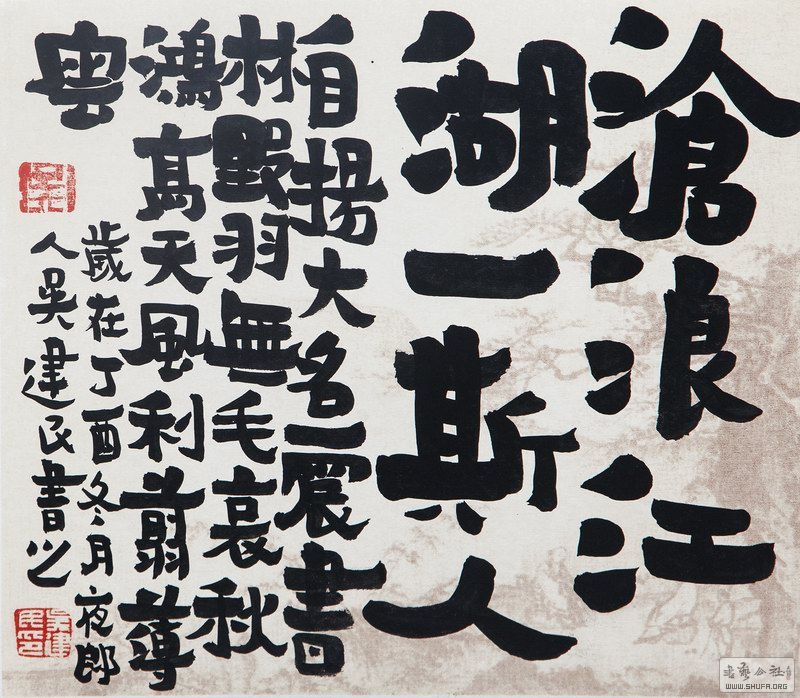 滄浪江
湖一斯人
自揚大名震書
林毀羽無毛哀秋
鴻高天風利翦薄
雲
歲在丁酉冬月夜郎
人吳建民書之
吳建民印
WWW.SHUFA.ORG